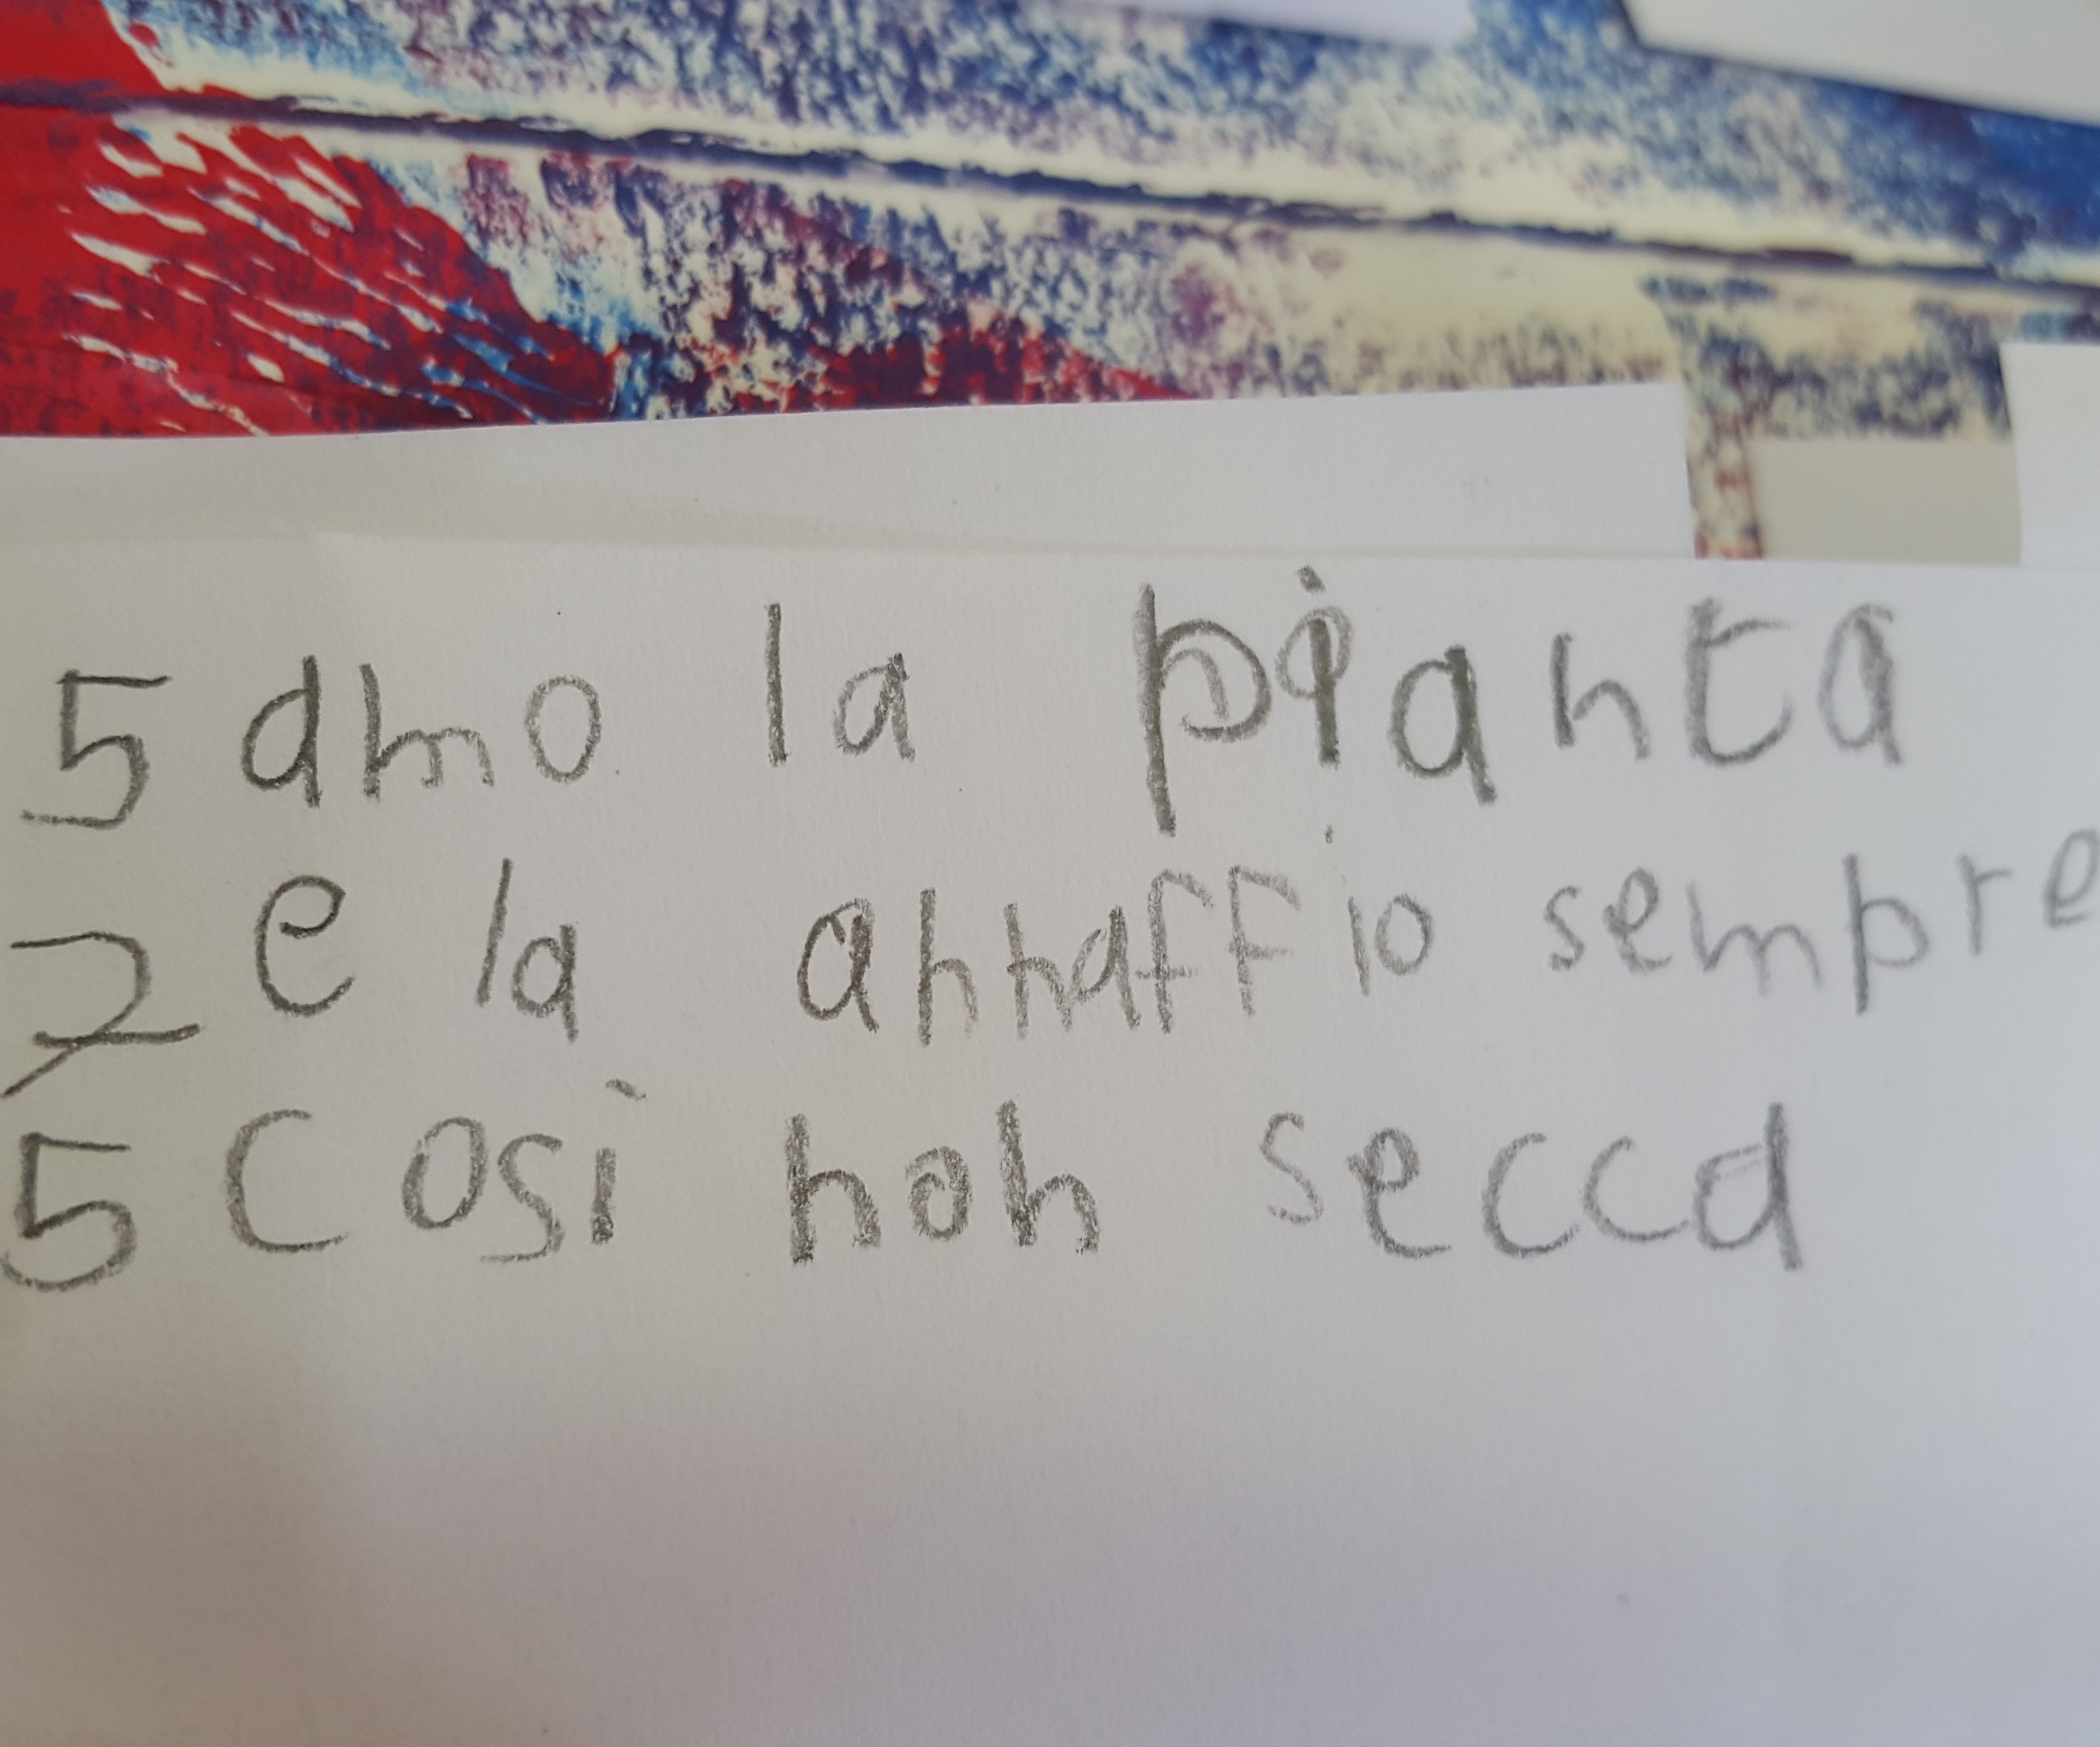 5 amo la pianta
7 e la annaffio sempre
5 così non secca